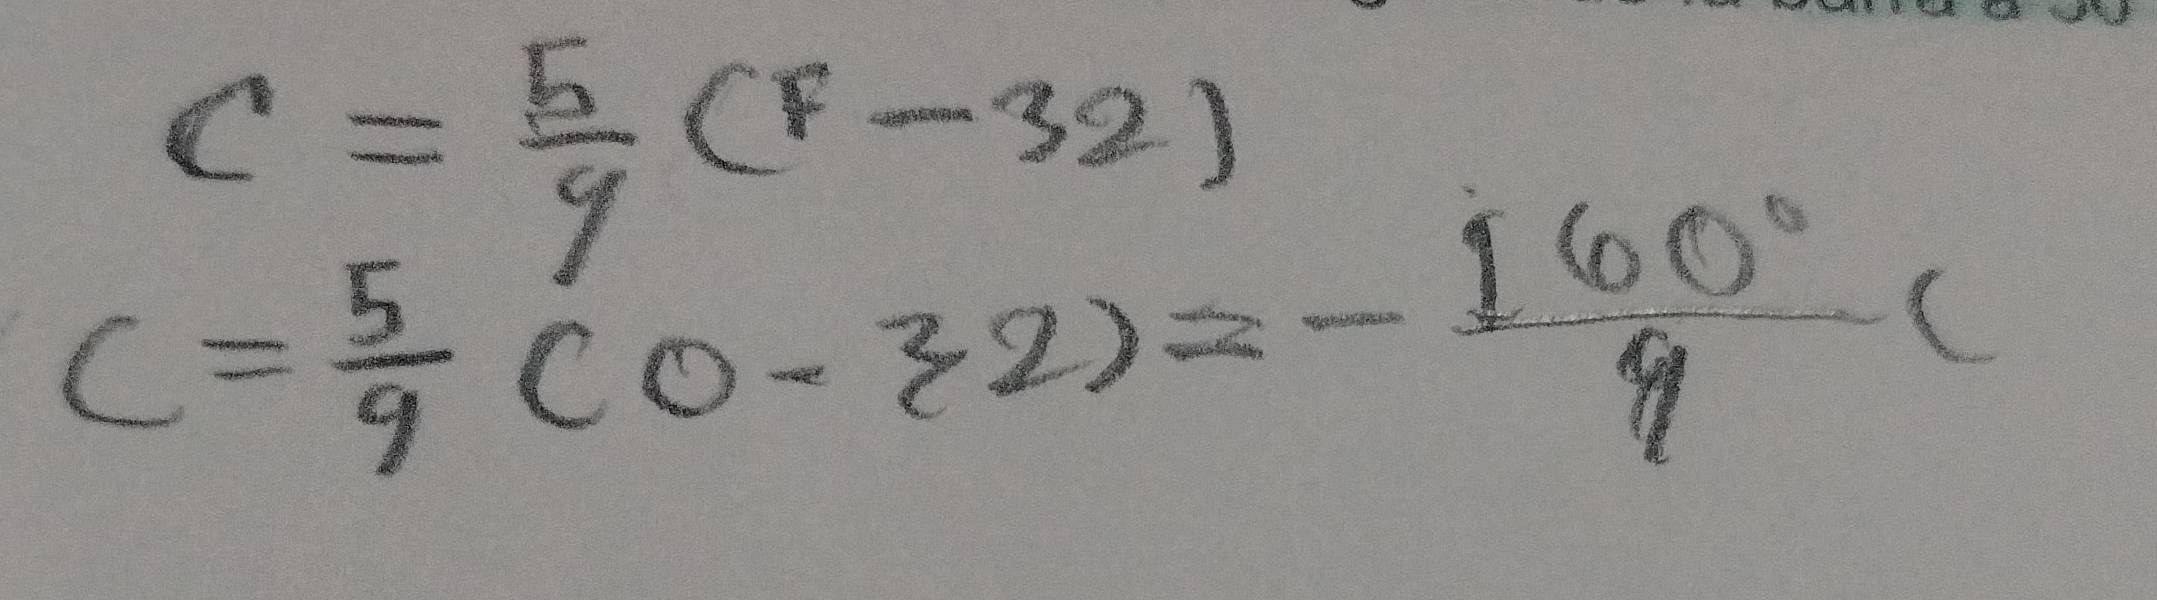 C = 5/9 (F - 32)
C = 5/9 (0 - 32) = - 160°/9 C